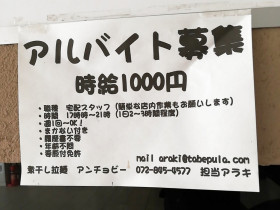 アルバイト募集
時給1000円
・職種 宅配スタッフ(簡単な店内作業もお願いします)
・時間 17時時〜21時(1日2〜3時間程度)
・週1回〜OK!
・まかない付き
・履歴書不要
・年齢不問
・要原付免許
mail araki@tabepula.com
煮干し拉麺 アンチョビー 072-895-4577 担当アラキ